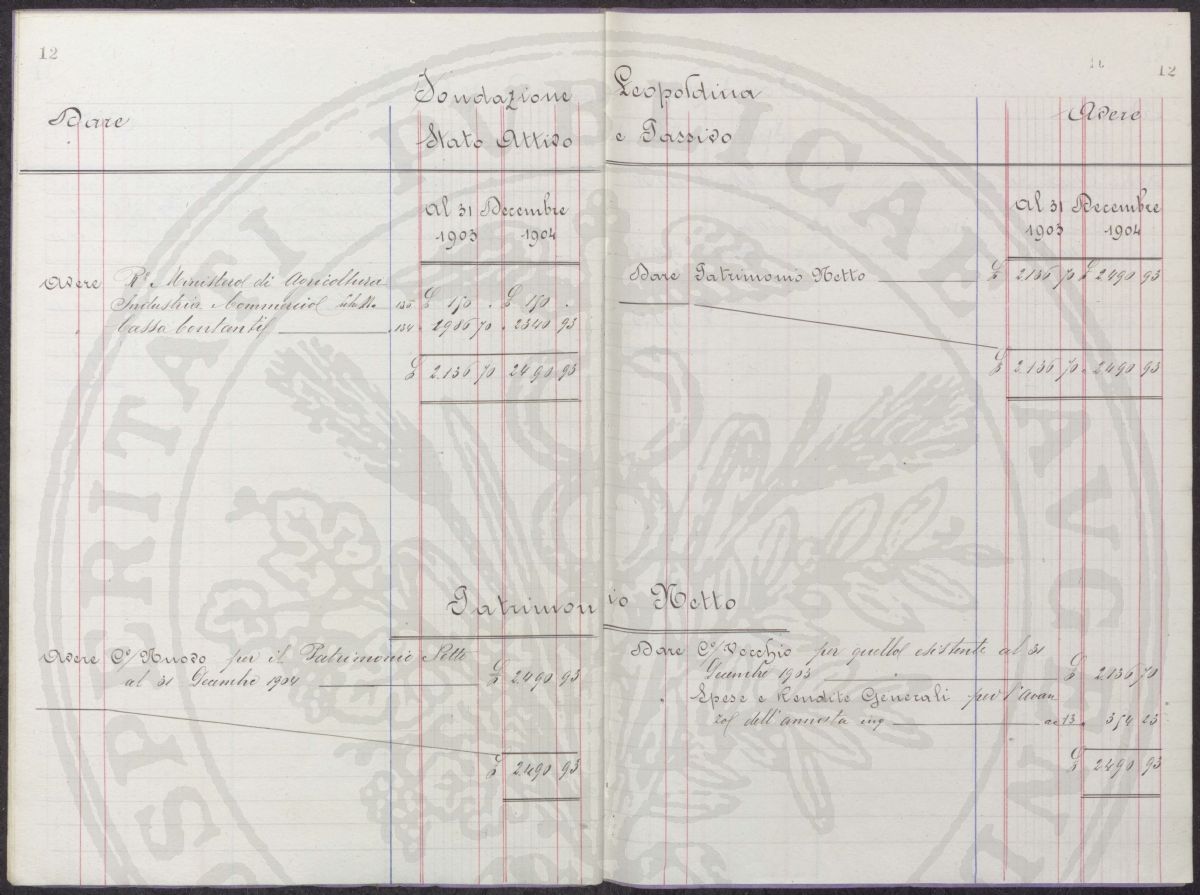 12
Dare
Fondazione
Stato Attivo
Al 31 Decembre
1903 1904
Avere Rº Ministero di Agricoltura
Industria e Commercio 135 £ 150 . £ 150 .
" Cassa Contanti 134 . 1986 70 . 2340 93
£ 2.136 70 2490 93
Patrimon
Avere C/ Nuovo per il Patrimonio Netto
al 31 Decembre 1904 £ 2.490 93
£ 2.490 93
12
Leopoldina
Avere
e Passivo
Al 31 Decembre
1903 1904
Dare Patrimonio Netto £ 2136 70 £ 2490 93
£ 2.136 70 . 2490 93
io Netto
Dare C/ Vecchio per quello esistente al 31
Decembre 1903 £ 2.136 70
" Spese e Rendite Generali per l'avan
zo dell'annata ac 13 . 354 23
£ 2490 93
PUBLICAE